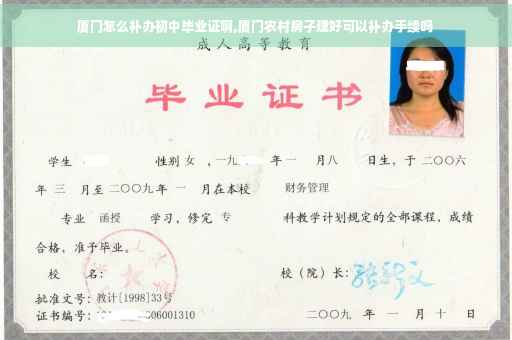 厦门怎么补办初中毕业证啊,厦门农村房子建好可以补办手续吗
成人高等教育
毕业证书
学生 性别 女 ,一九 年一 月八 日生,于二〇〇六
年 三 月至二〇〇九年 一 月在本校 财务管理
专业 函授 学习,修完 专 科教学计划规定的全部课程,成绩
合格,准予毕业。
校 名: 校(院)长:
批准文号:教计[1998]33号
证书编号: 06001310 二〇〇九 年 一 月 十 日